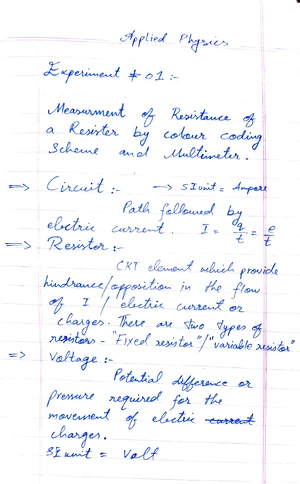 Applied Physics
Experiment # 01 :-
Measurment of Resistance of
a Resister by colour coding
Scheme and Multimeter.
=> Circuit :- → SI unit = Ampere
Path followed by
electric current. I = q/t = e/t
=> Resistor :-
CKT element which provide
hindrance/opposition in the flow
of I / electric current or
charges. There are two types of
resistors - "Fixed resistor"/"variable resistor"
=> Voltage :-
Potential difference or
pressure required for the
movement of electric current
charges.
SI unit = Volt